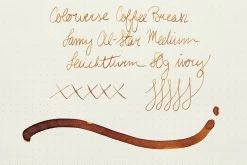 Colorverse Coffee Break
Lamy Al-Star Medium
Leuchtturm 80g ivory
XXXXX